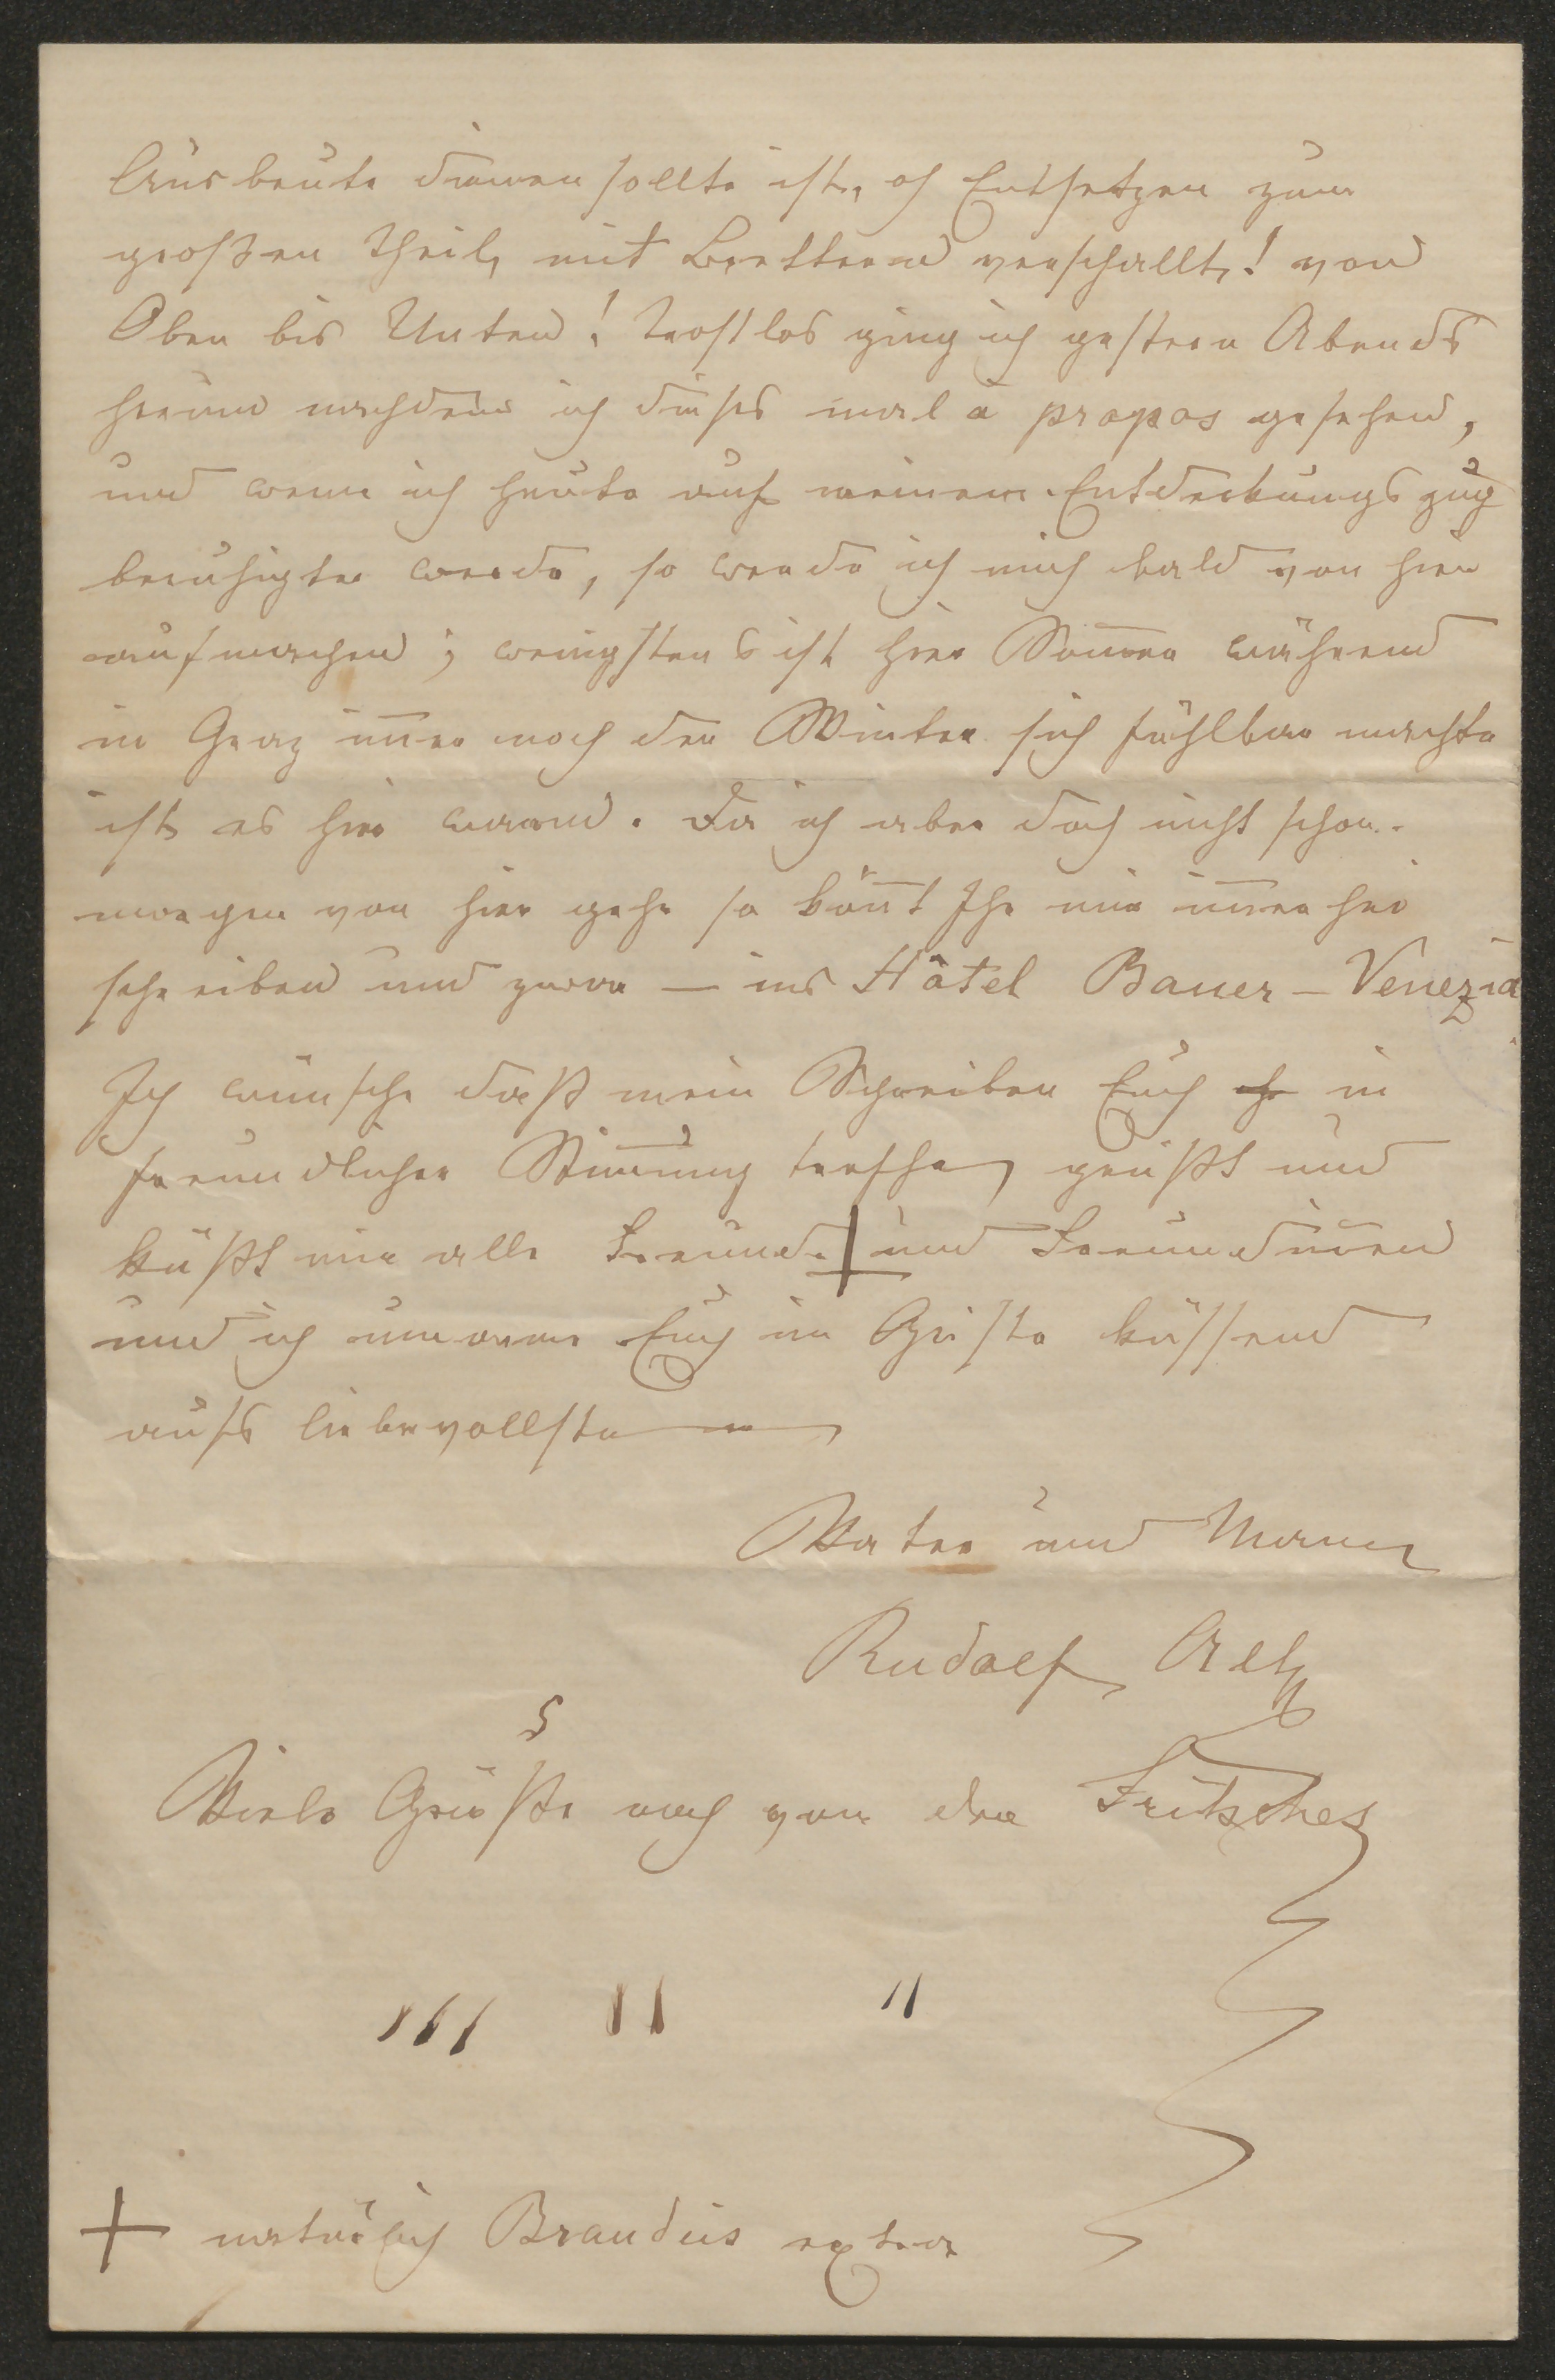 Ausbeute dienen sollte ist, o Entsetzen zum
großen Theil, mit Brettern verschallt,! von
Oben bis Unten! Trostlos ging ich gestern Abends
herum nachdem ich dieses mal à propos gesehen,
und wenn ich heute auf meinem Entdeckungszug
beruhigter werde, so werde ich mich bald von hier
aufmachen; wenigstens ist hier Som̅er während
in Graz im̅er noch der Winter sich fühlbar machte
ist es hier warm. Da ich aber doch nicht schon
morgen von hier gehe so kön̅t Ihr mir im̅er hin
schreiben und zwar — ins Hôtel Bauer – Venezia
Ich wünsche daß mein Schreiben Euch in
freundlicher Stim̅ung treffe, grüßt und
küßt mir alle Freunde + und Freundin̅en
und ich umarme Euch im Geiste küssend
aufs liebevollste
Vater und Mann
Rudolf Alt
Viele Grüße auch von den Fritsches
+ natürlich Brandeis extra